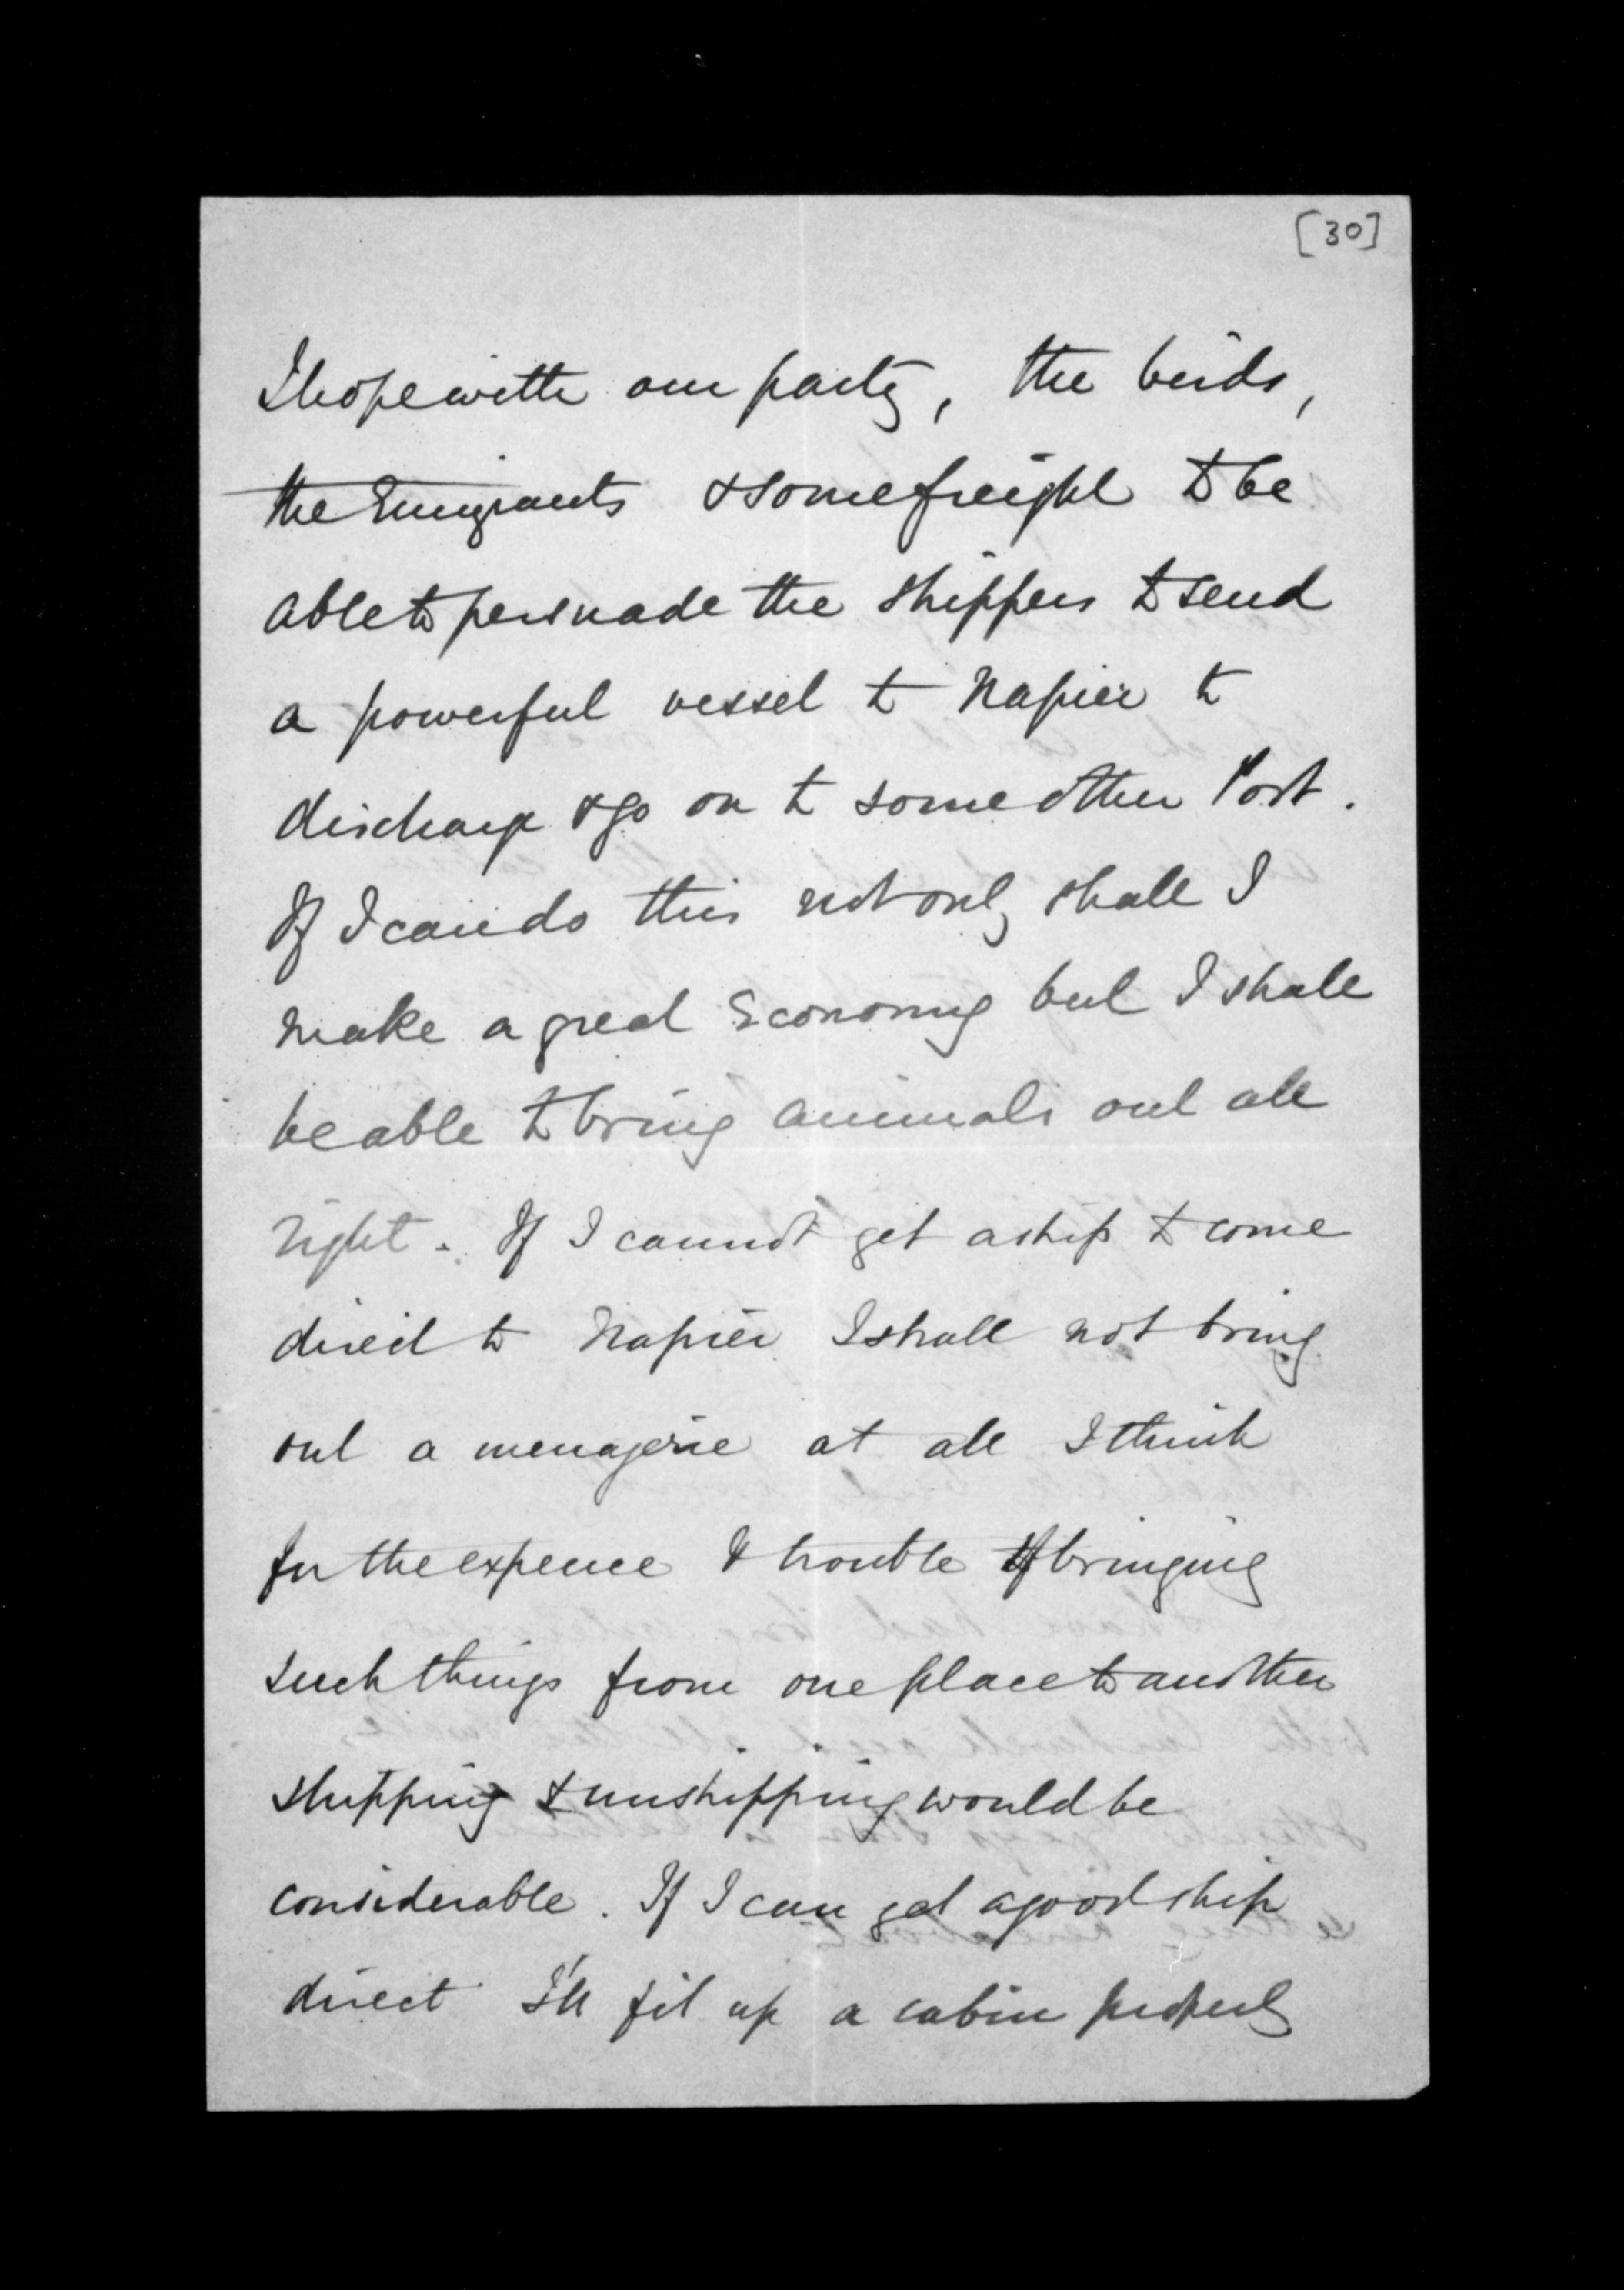 [30]
I hope with our party, the birds,
the Emigrants & some freight to be
able to persuade the shippers to send
a powerful vessel to Napier to
discharge & go on to some other Port.
If I can do this not only shall I
make a great Economy but I shall
be able to bring animals out all
right. If I cannot get a ship to come
direct to Napier I shall not bring
out a menagerie at all I think
for the expence & trouble of bringing
such things from one place to another
shipping & unshipping would be
considerable. If I can get a good ship
direct I'll fit up a cabin properly